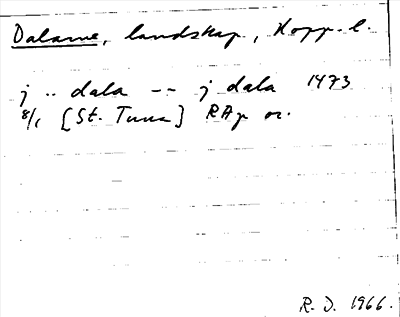 Dalarne, landskap, Kopp. l.
j .. dala -- j dala 1473
8/1 [St. Tuna] RAp or.
R. D. 1966.